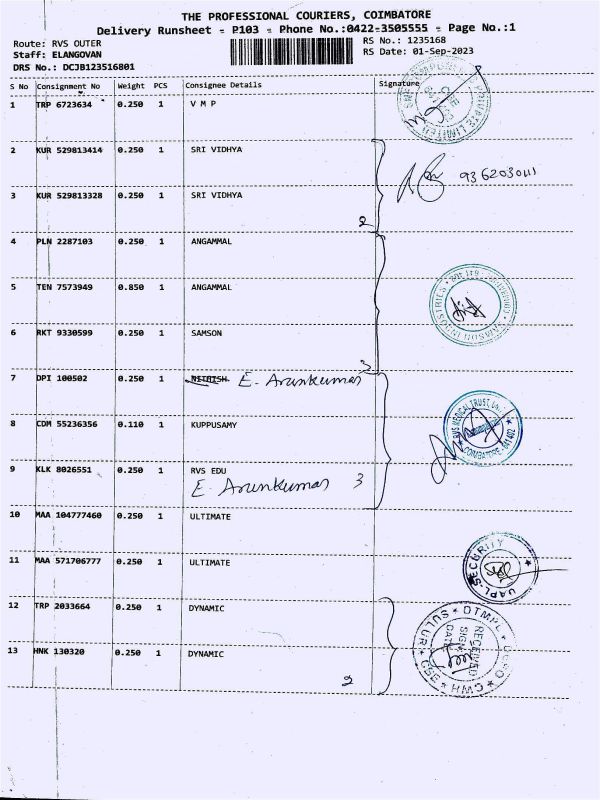 THE PROFESSIONAL COURIERS, COIMBATORE
Delivery Runsheet - P103 - Phone No.:0422-3505555 - Page No.:1
Route: RVS OUTER RS No.: 1235168
Staff: ELANGOVAN RS Date: 01-Sep-2023
DRS No.: DCJB123516801
S No Consignment No Weight PCS Consignee Details Signature
1 TRP 6723634 0.250 1 V M P
2 KUR 529813414 0.250 1 SRI VIDHYA
3 KUR 529813328 0.250 1 SRI VIDHYA
2
4 PLN 2287103 0.250 1 ANGAMMAL
5 TEN 7573949 0.850 1 ANGAMMAL
6 RKT 9330599 0.250 1 SAMSON
3
7 DPI 100502 0.250 1 NITHISH E. Arunkumar
8 CDM 55236356 0.110 1 KUPPUSAMY RVS MEDICAL TRUST COIMBATORE - 641 402
9 KLK 8026551 0.250 1 RVS EDU
E. Arunkumar 3
10 MAA 104777460 0.250 1 ULTIMATE
11 MAA 571706777 0.250 1 ULTIMATE UAPL-SECURITY
12 TRP 2033664 0.250 1 DYNAMIC DTMPL RECEIVED SIGN DATE SULUR CSE HMG
13 HNK 130320 0.250 1 DYNAMIC
2